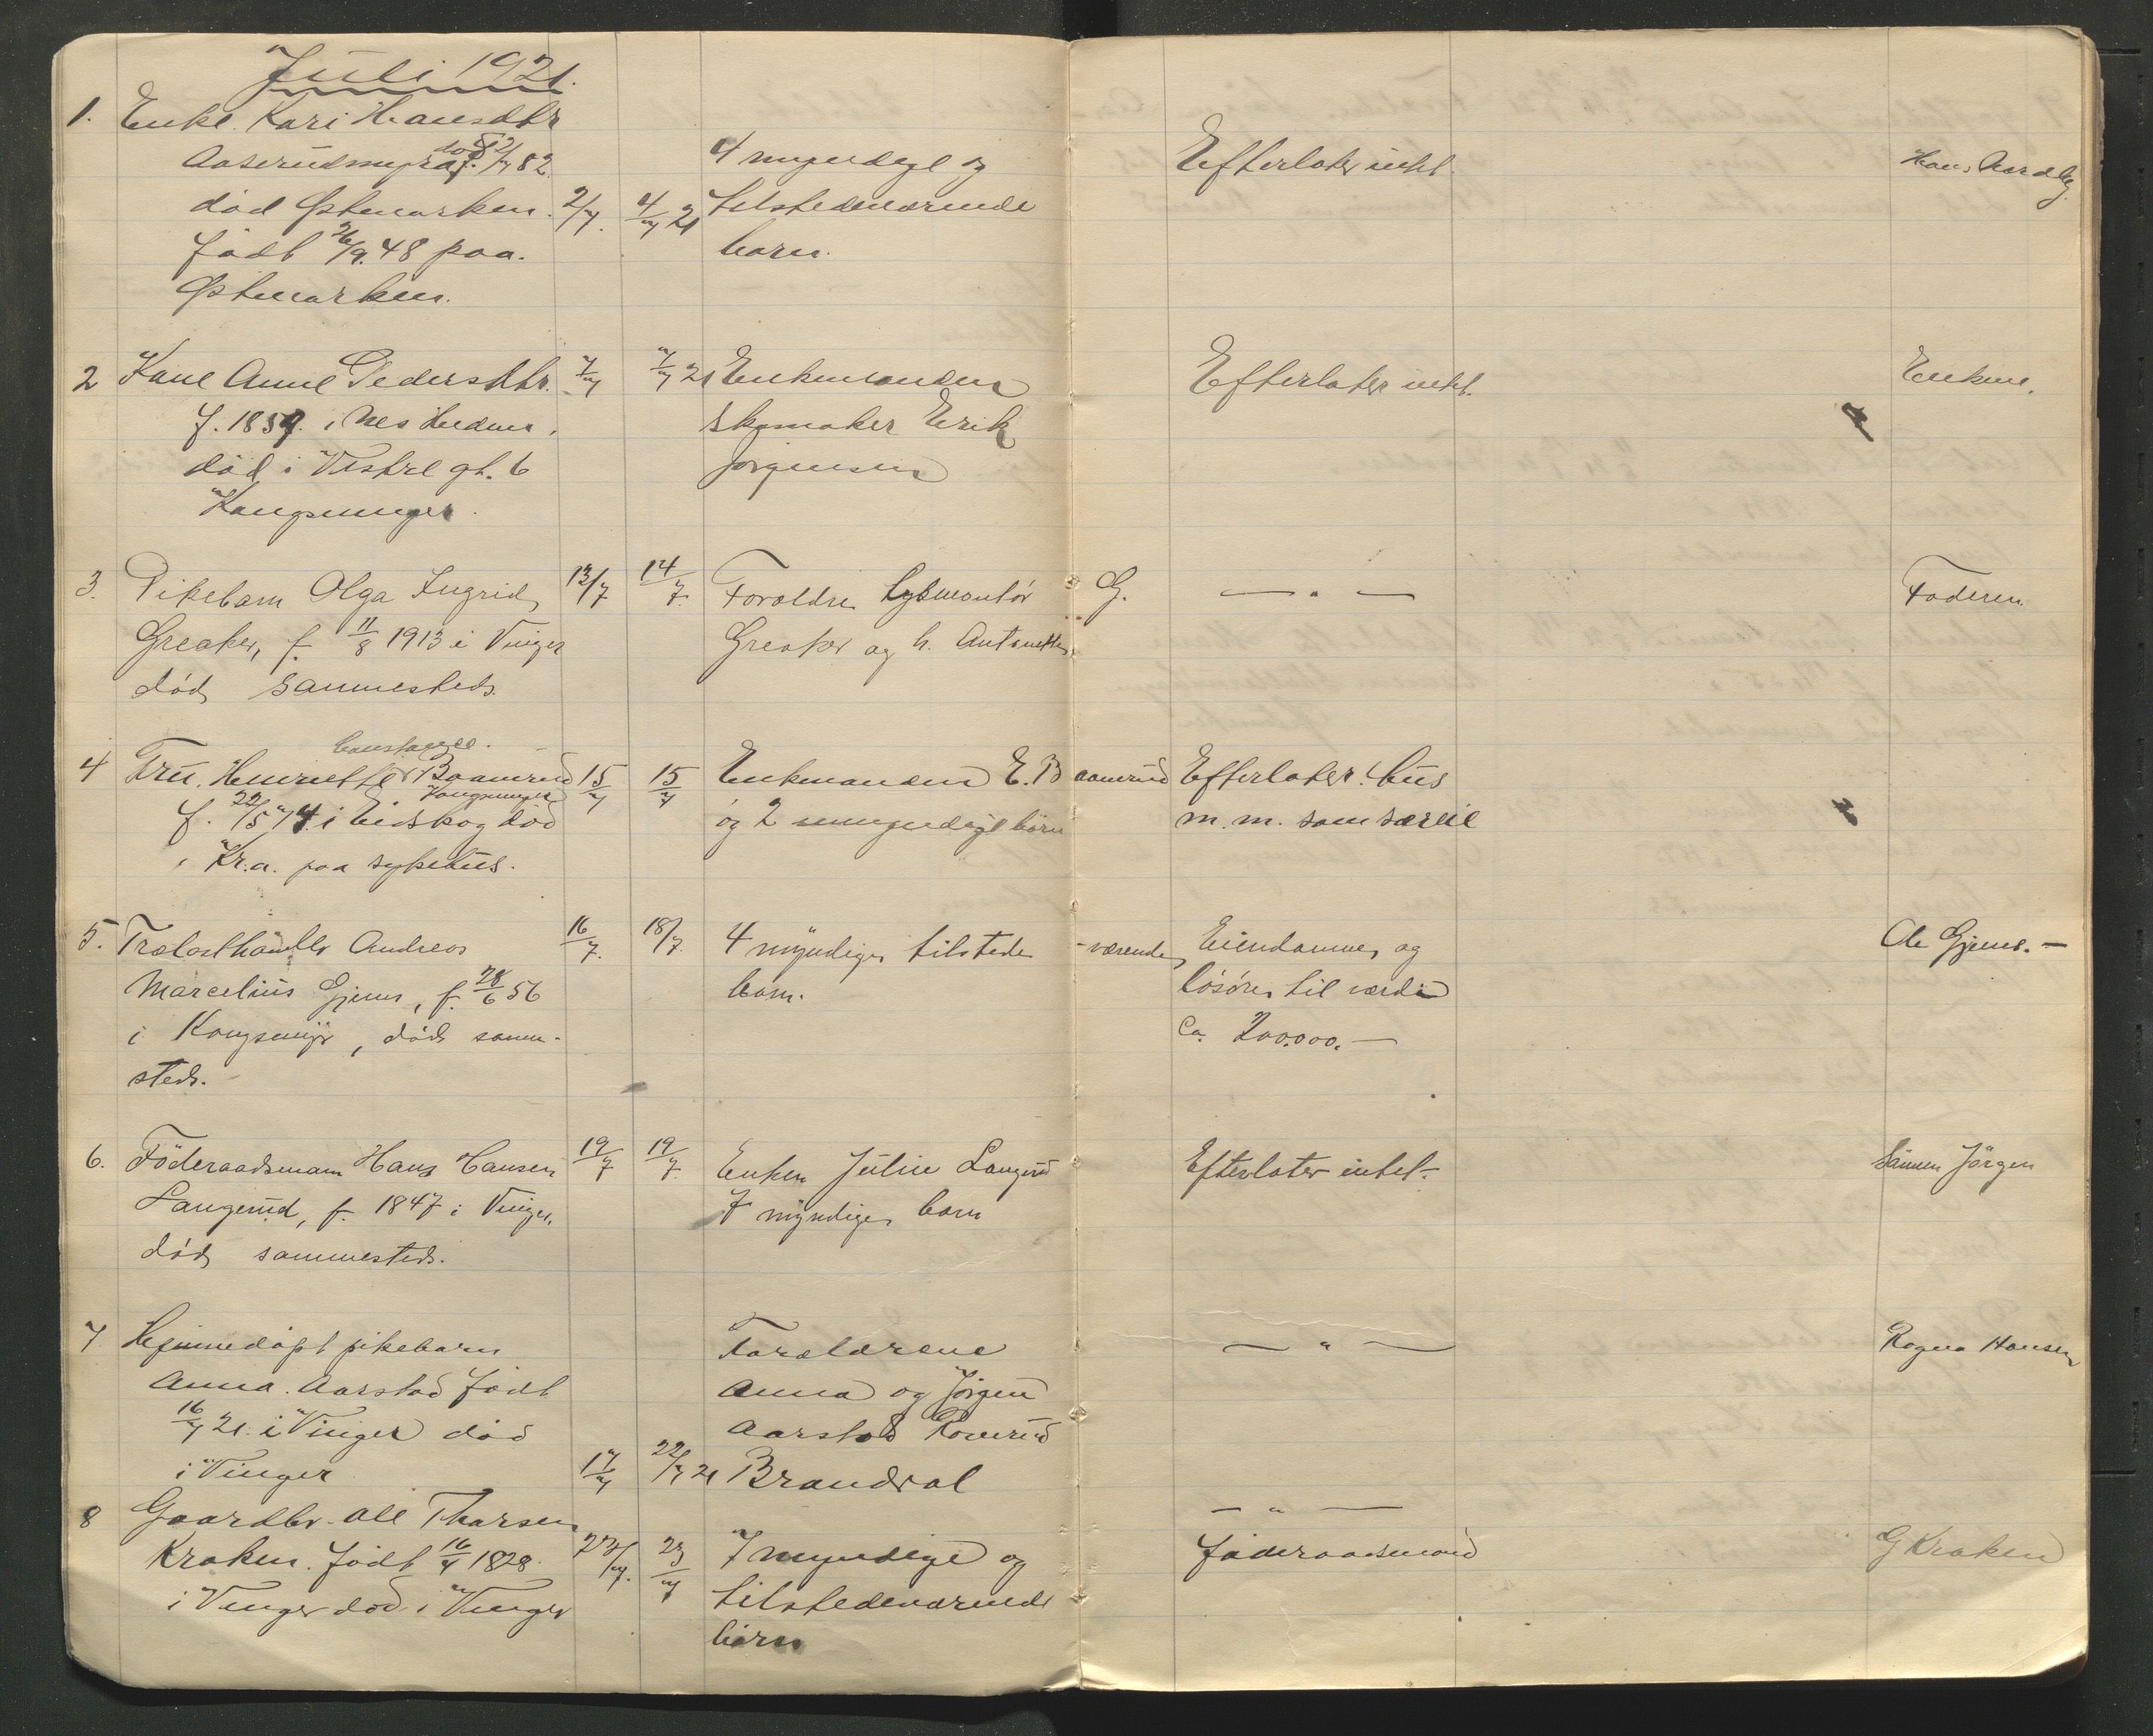 Juli 1921.
1. Enke. Kari Hansdtr
Aaserudmyra
død Østmarken. 2/7. 4/7 21
født 26/9.48 paa.
Østmarken.
4 myndige og
tilstedeværende
barn.
Efterlater intet.
Hans Nordby
2 Kone Anne Pedersdtr. 7/7 7/7 21
f. 1859. i Nes Hedm.
død i Vestre gt. 6
Kongsvinger.
Enkemanden
skomaker Erik
Jørgensen
Efterlater intet.
Enkem.
3. Pikebarn Olga Ingrid 13/7 14/7.
Greaker, f. 11/8 1913 i Vinger
død sammesteds.
Foreldre Lysmontør G.
Greaker og h. Antonette
— " —
Faderen.
4 Fru. Henriette Baamrud 15/7 15/7
Kongsvinger
f. 22/5 74 i Eidskog død
i Kr.a. paa sykehus.
Enkemanden E. Baamrud
og 2 umyndige børn
Efterlater hus
m.m. som særeie
5. Trælasthandler Andreas 16/7. 18/7.
Marcelius Gjems, f. 28/6 56
i Kongsvinger, død samme-
steds.
4 myndige tilstede-værende
barn.
Eiendommer og
løsøre til værdi
Ca. 200.000.—
Ole Gjems. —
6. Föderaadsmann Hans Hansen 19/7 19/7.
Langerud, f. 1847 i Vinger,
død sammesteds.
Enken Julie Langerud
7 myndige barn
Efterlater intet.
Sönnen Jörgen
7 Hjemmedøpt pikebarn
Anna. Aarstad født
16/7 21. i Vinger død
i Vinger 17/7 22/7 21
Forældrene
Anna og Jörgen
Aarstad
Brandval
— " —
Ragna Hansen
8 Gaardbr. Ole Thorsen
Kroken. født 16/4 1828. 22/7. 23/7
i Vinger død i Vinger
7 myndige og
tilstedeværende
børn
— " —
föderaadsmand
G Kroken